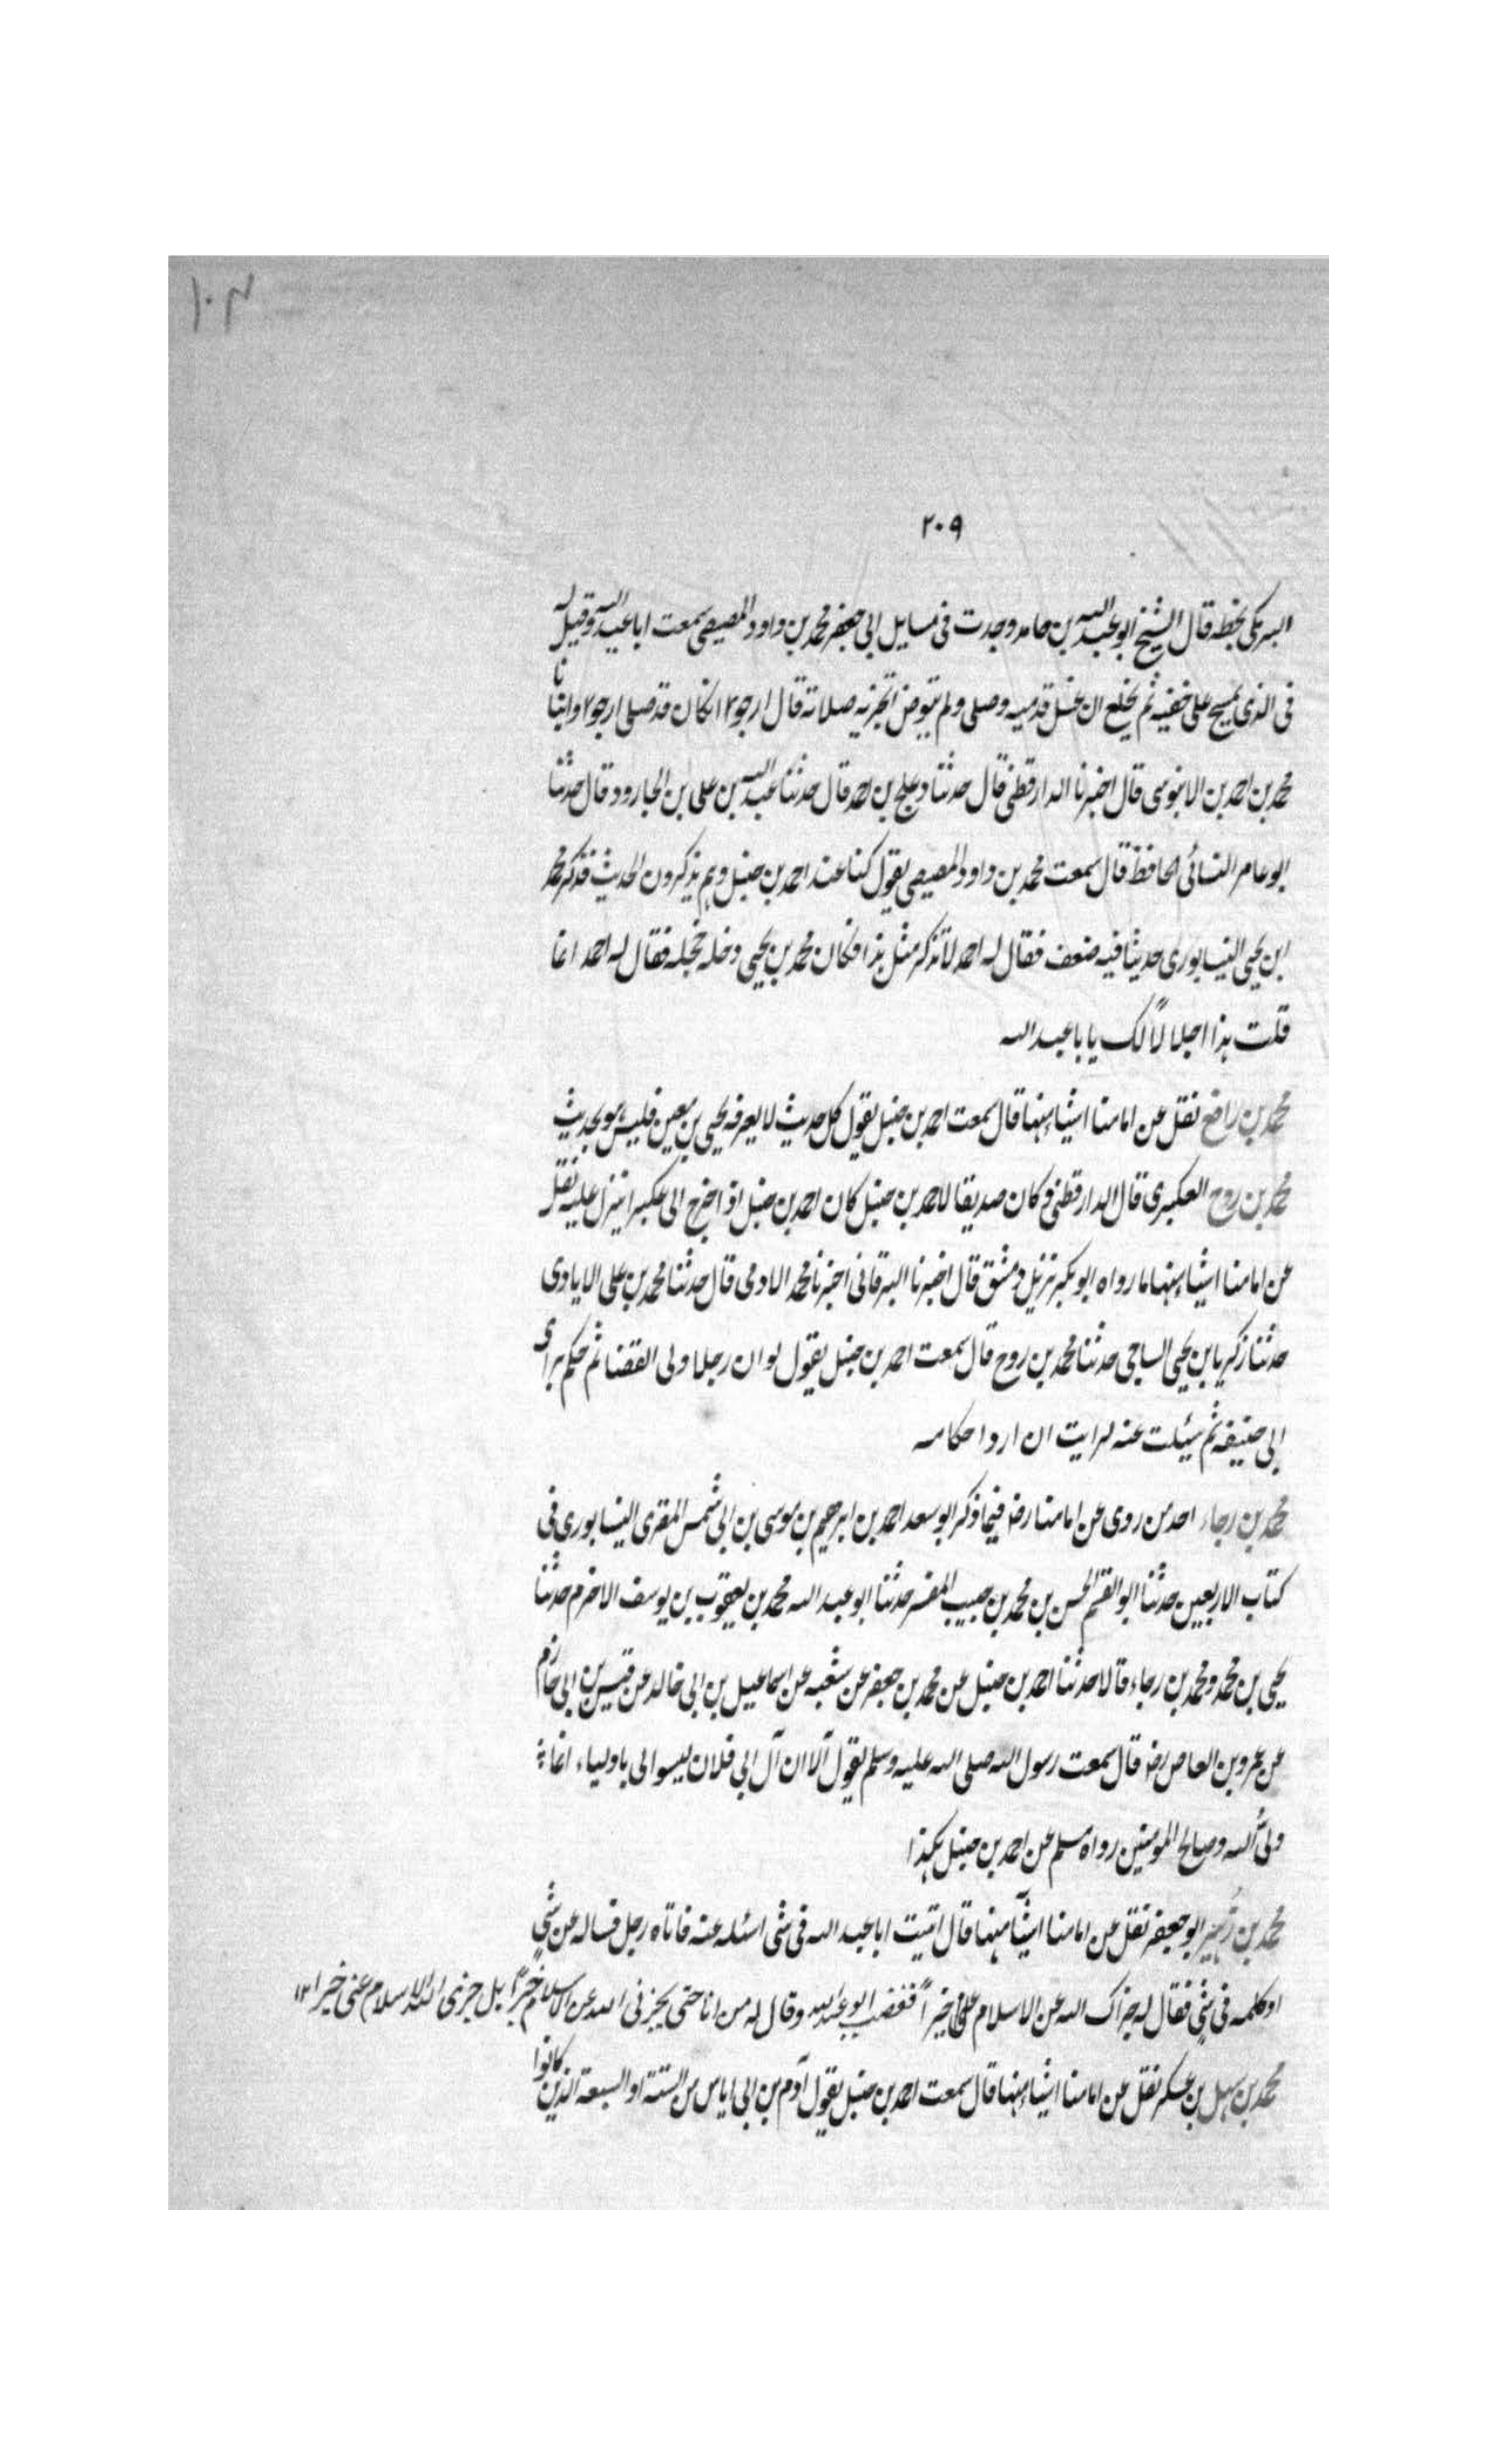 ١٠٣
٢٠٩
البرمكى بخطه قال الشيخ ابو عبد الله بن حامد وجدت فى مسايل ابى جعفر محمد بن داود المصيصى سمعت ابا عبد الله وقيل له
فى الذى يمسح على خفيه ثم يخلع ان غسل قدميه وصلى ولم يتوضا تجزيه صلاته قال ارجو ٢ ان كان قد صلى ارجو ٢ وانبانا
محمد بن احمد بن الابنوسى قال اخبرنا الدارقطنى قال حدثنا دعلج بن احمد قال حدثنا عبد الله بن على بن الجارود قال حدثنا
ابو عامر النسائى الحافظ قال سمعت محمد بن داود المصيصى يقول كنا عند احمد بن حنبل وهم يذكرون الحديث فذكر محمد
ابن يحيى النيسابورى حديثا فيه ضعف فقال له احمد لا تذكر مثل هذا فكان محمد بن يحيى دخله خجله فقال له احمد انما
قلت هذا اجلالاً لك يا با عبد الله
محمد بن رافع نقل عن امامنا اشياء منها قال سمعت احمد بن حنبل يقول كل حديث لا يعرفه يحيى بن معين فليس هو بحديث
محمد بن روح العكبرى قال الدارقطنى وكان صديقا لاحمد بن حنبل كان احمد بن حنبل اذا خرج الى عكبرا ينزل عليه نقل
عن امامنا اشياء منها ما رواه ابو بكر نزيل دمشق قال اخبرنا البرقانى اخبرنا محمد الادمى قال حدثنا محمد بن على الايادى
حدثنا زكريا بن يحيى الساجى حدثنا محمد بن روح قال سمعت احمد بن حنبل يقول لو ان رجلا ولى القضا ثم حكم براى
ابى حنيفه ثم سئلت عنه لرايت ان ارد احكامه
محمد بن رجاء احد من روى عن امامنا رضه فيما ذكر ابو سعد احمد بن ابرهيم بن موسى بن ابى شمس المقرى النيسابورى فى
كتاب الاربعين حدثنا ابو القسم الحسن بن محمد بن حبيب المفسر حدثنا ابو عبد الله محمد بن يعقوب بن يوسف الاخرم حدثنا
يحيى بن محمد ومحمد بن رجاء قالا حدثنا احمد بن حنبل عن محمد بن جعفر عن شعبه عن اسماعيل بن ابى خالد عن قيس بن ابى حازم
عن عمرو بن العاص رضه قال سمعت رسول الله صلى الله عليه وسلم يقول الا ان آل ابى فلان ليسوا لى باولياء انما
ولى الله وصالح المومنين رواه مسلم عن احمد بن حنبل هكذا
محمد بن زهير ابو جعفر نقل عن امامنا اشيآ منها قال اتيت ابا عبد الله فى شى اسئله عنه فاتاه رجل فساله عن شى
او كلمه فى شى فقال له جزاك الله عن الاسلام خيراً فغضب ابو عبد الله وقال له من انا حتى يجزنى الله عن الاسلام خيراً بل جزى الله الاسلام عنى خيرا ١٢
محمد بن سهل بن عسكر نقل عن امامنا اشياء منها قال سمعت احمد بن حنبل يقول آدم بن ابى اياس من الستة او السبعة الذين كانوا